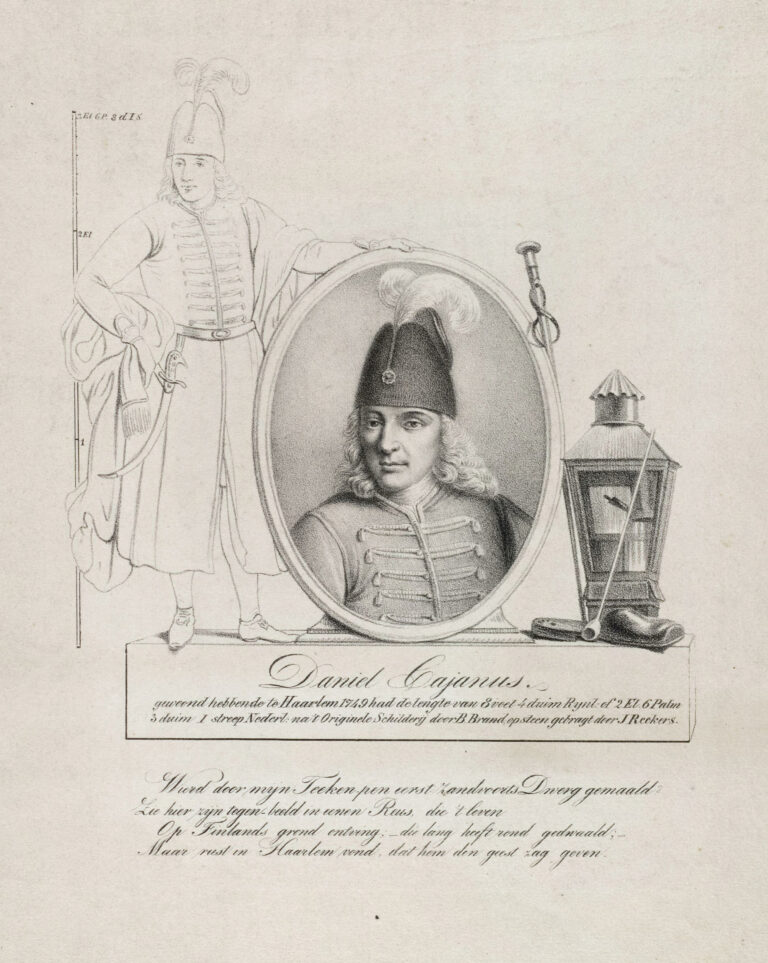 2 El 6 P. 3 d. 1 S.
2 El
1
Daniel Cajanus.
gewoond hebbende te Haarlem 1749 had de lengte van 8 voet 4 duim Rynl: of 2 El 6 Palm
3 duim 1 streep Nederl: na 't Origineele Schilderij door B Brand, op steen gebragt door J Reekers.
Wierd door mijn Teeken-pen eerst Zandvoorts Dwerg gemaald?
Zie hier zijn tegen-beeld in eenen Reus, die 't leven
Op Finlands grond ontving; – die lang heeft rond gedwaald; –
Maar rust in Haarlem vond, dat hem den geest zag geven.